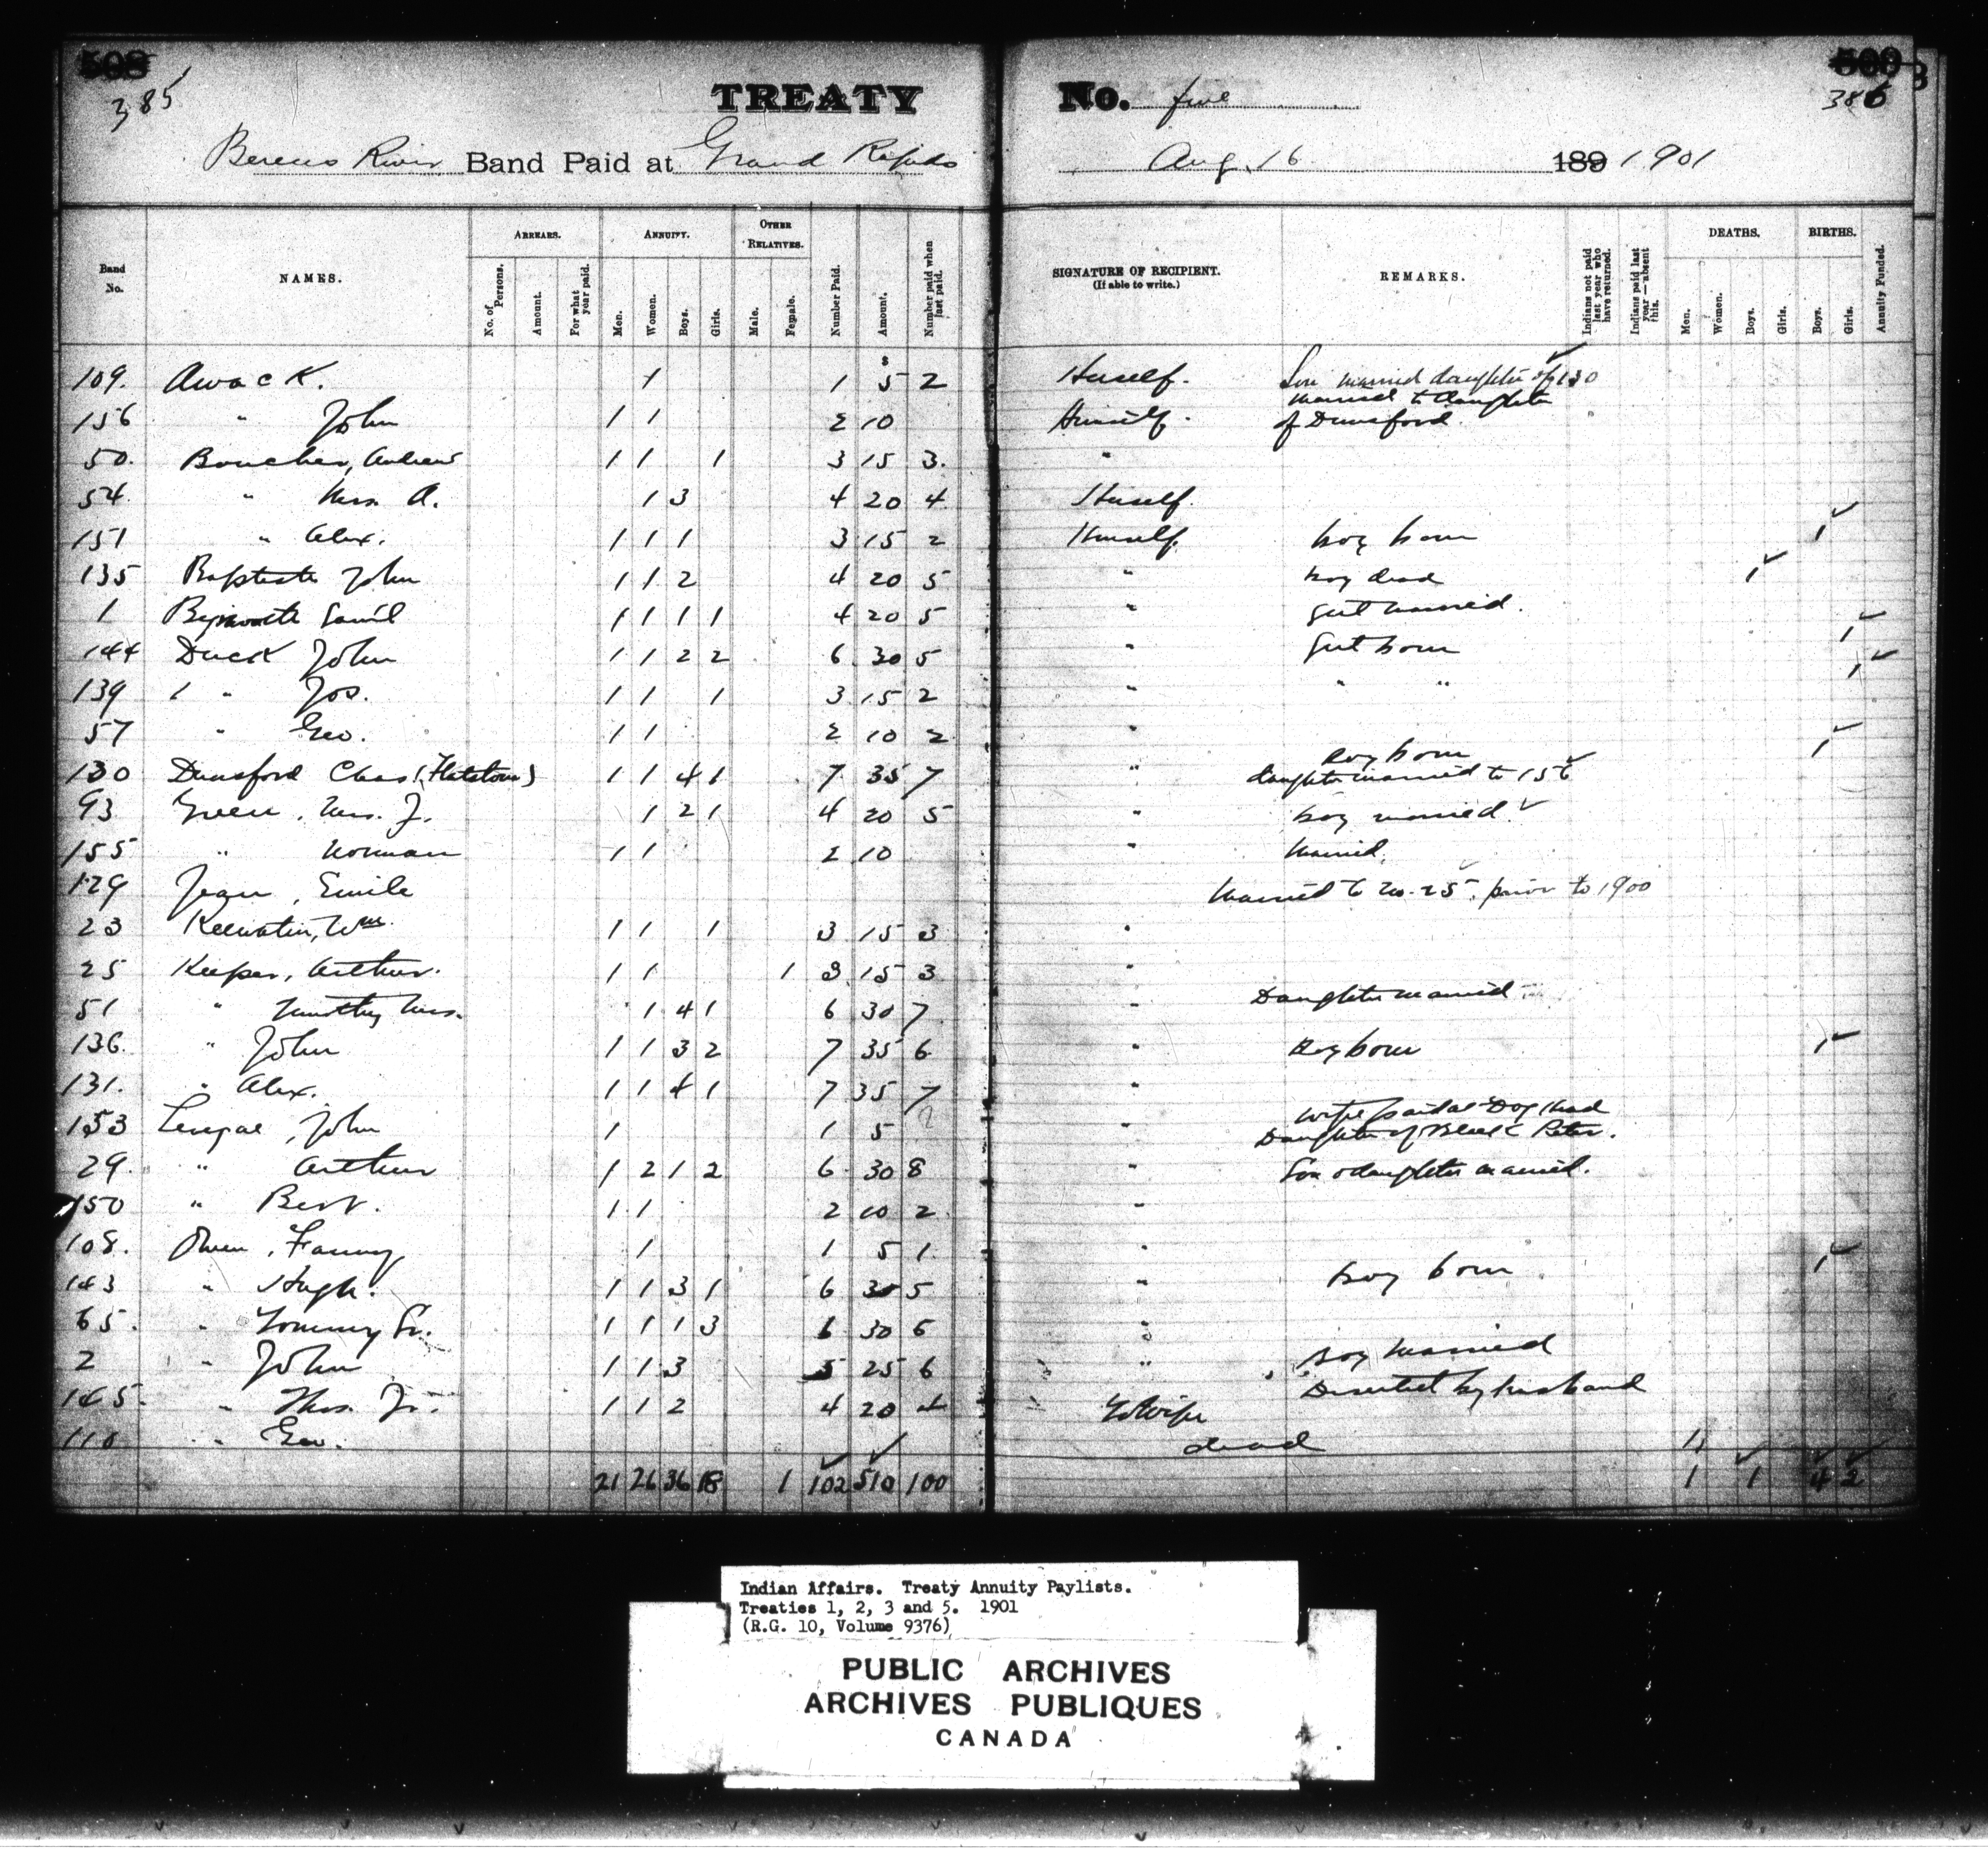 508 509
385 386
TREATY No. five
Berens River Band Paid at Grand Rapids Aug. 16 189 1901
Band No. NAMES. ARREARS. No. of Persons. Amount. For what year paid. ANNUITY. Men. Women. Boys. Girls. OTHER RELATIVES. Male. Female. Number Paid. Amount. Number paid when last paid. SIGNATURE OF RECIPIENT. (If able to write.) REMARKS. Indians not paid last year who have returned. Indians paid last year — absent this. DEATHS. Men. Women. Boys. Girls. BIRTHS. Boys. Girls. Annuity Funded.
109. Awack. 1 1 $ 5 2 Herself. Son married daughter of 130
156 " John 1 1 2 10 Himself. married to daughter of Dunsford.
50. Boucher, Andrew 1 1 1 3 15 3. "
54 " Mrs. A. 1 3 4 20 4 Herself.
151 " Alex. 1 1 1 3 15 2 Himself. boy born 1
135 Baptiste John 1 1 2 4 20 5 " boy dead 1
1 Saml 1 1 1 1 4 20 5 " girl married.
144 Duck John 1 1 2 2 6 30 5 " Girl born 1
139 " Jos. 1 1 1 3 15 2 " " " 1
57 " Geo. 1 1 2 10 2 "
Boy born 1
130 Dunsford Chas (Flatstone) 1 1 4 1 7 35 7 " daughter married to 156
93 Green, Mrs. J. 1 2 1 4 20 5 " boy married.
155 " Norman 1 1 2 10 " married.
129 Jean, Emile Married to No. 25. prior to 1900
23 Keewatin, Wm. 1 1 1 3 15 3 "
25 Keeper, Arthur. 1 1 1 3 15 3 "
51 " Timothy Mrs. 1 4 1 6 30 7 " Daughter married
136. " John 1 1 3 2 7 35 6 " Boy born 1
131. " Alex. 1 1 4 1 7 35 7 "
153 John 1 1 5 " wife paid at Dog Head Daughter of Black Peter.
29. " Arthur 1 2 1 2 6 30 8 " Son & daughter married.
150 " Bert. 1 1 2 10 2 "
108. Owen, Fanny 1 1 5 1. "
143 " Hugh. 1 1 3 1 6 30 5 " boy born 1
65. " Tommy Sr. 1 1 1 3 6 30 6 "
2 " John 1 1 3 5 25 6 " boy married
145. " Thos. Jr. 1 1 2 4 20 4 To Wife Deserted by husband
110 " Geo. dead 1
21 26 36 18 1 102 510 100 1 1 4 2
Indian Affairs. Treaty Annuity Paylists.
Treaties 1, 2, 3 and 5. 1901
(R.G. 10, Volume 9376)
PUBLIC ARCHIVES
ARCHIVES PUBLIQUES
CANADA